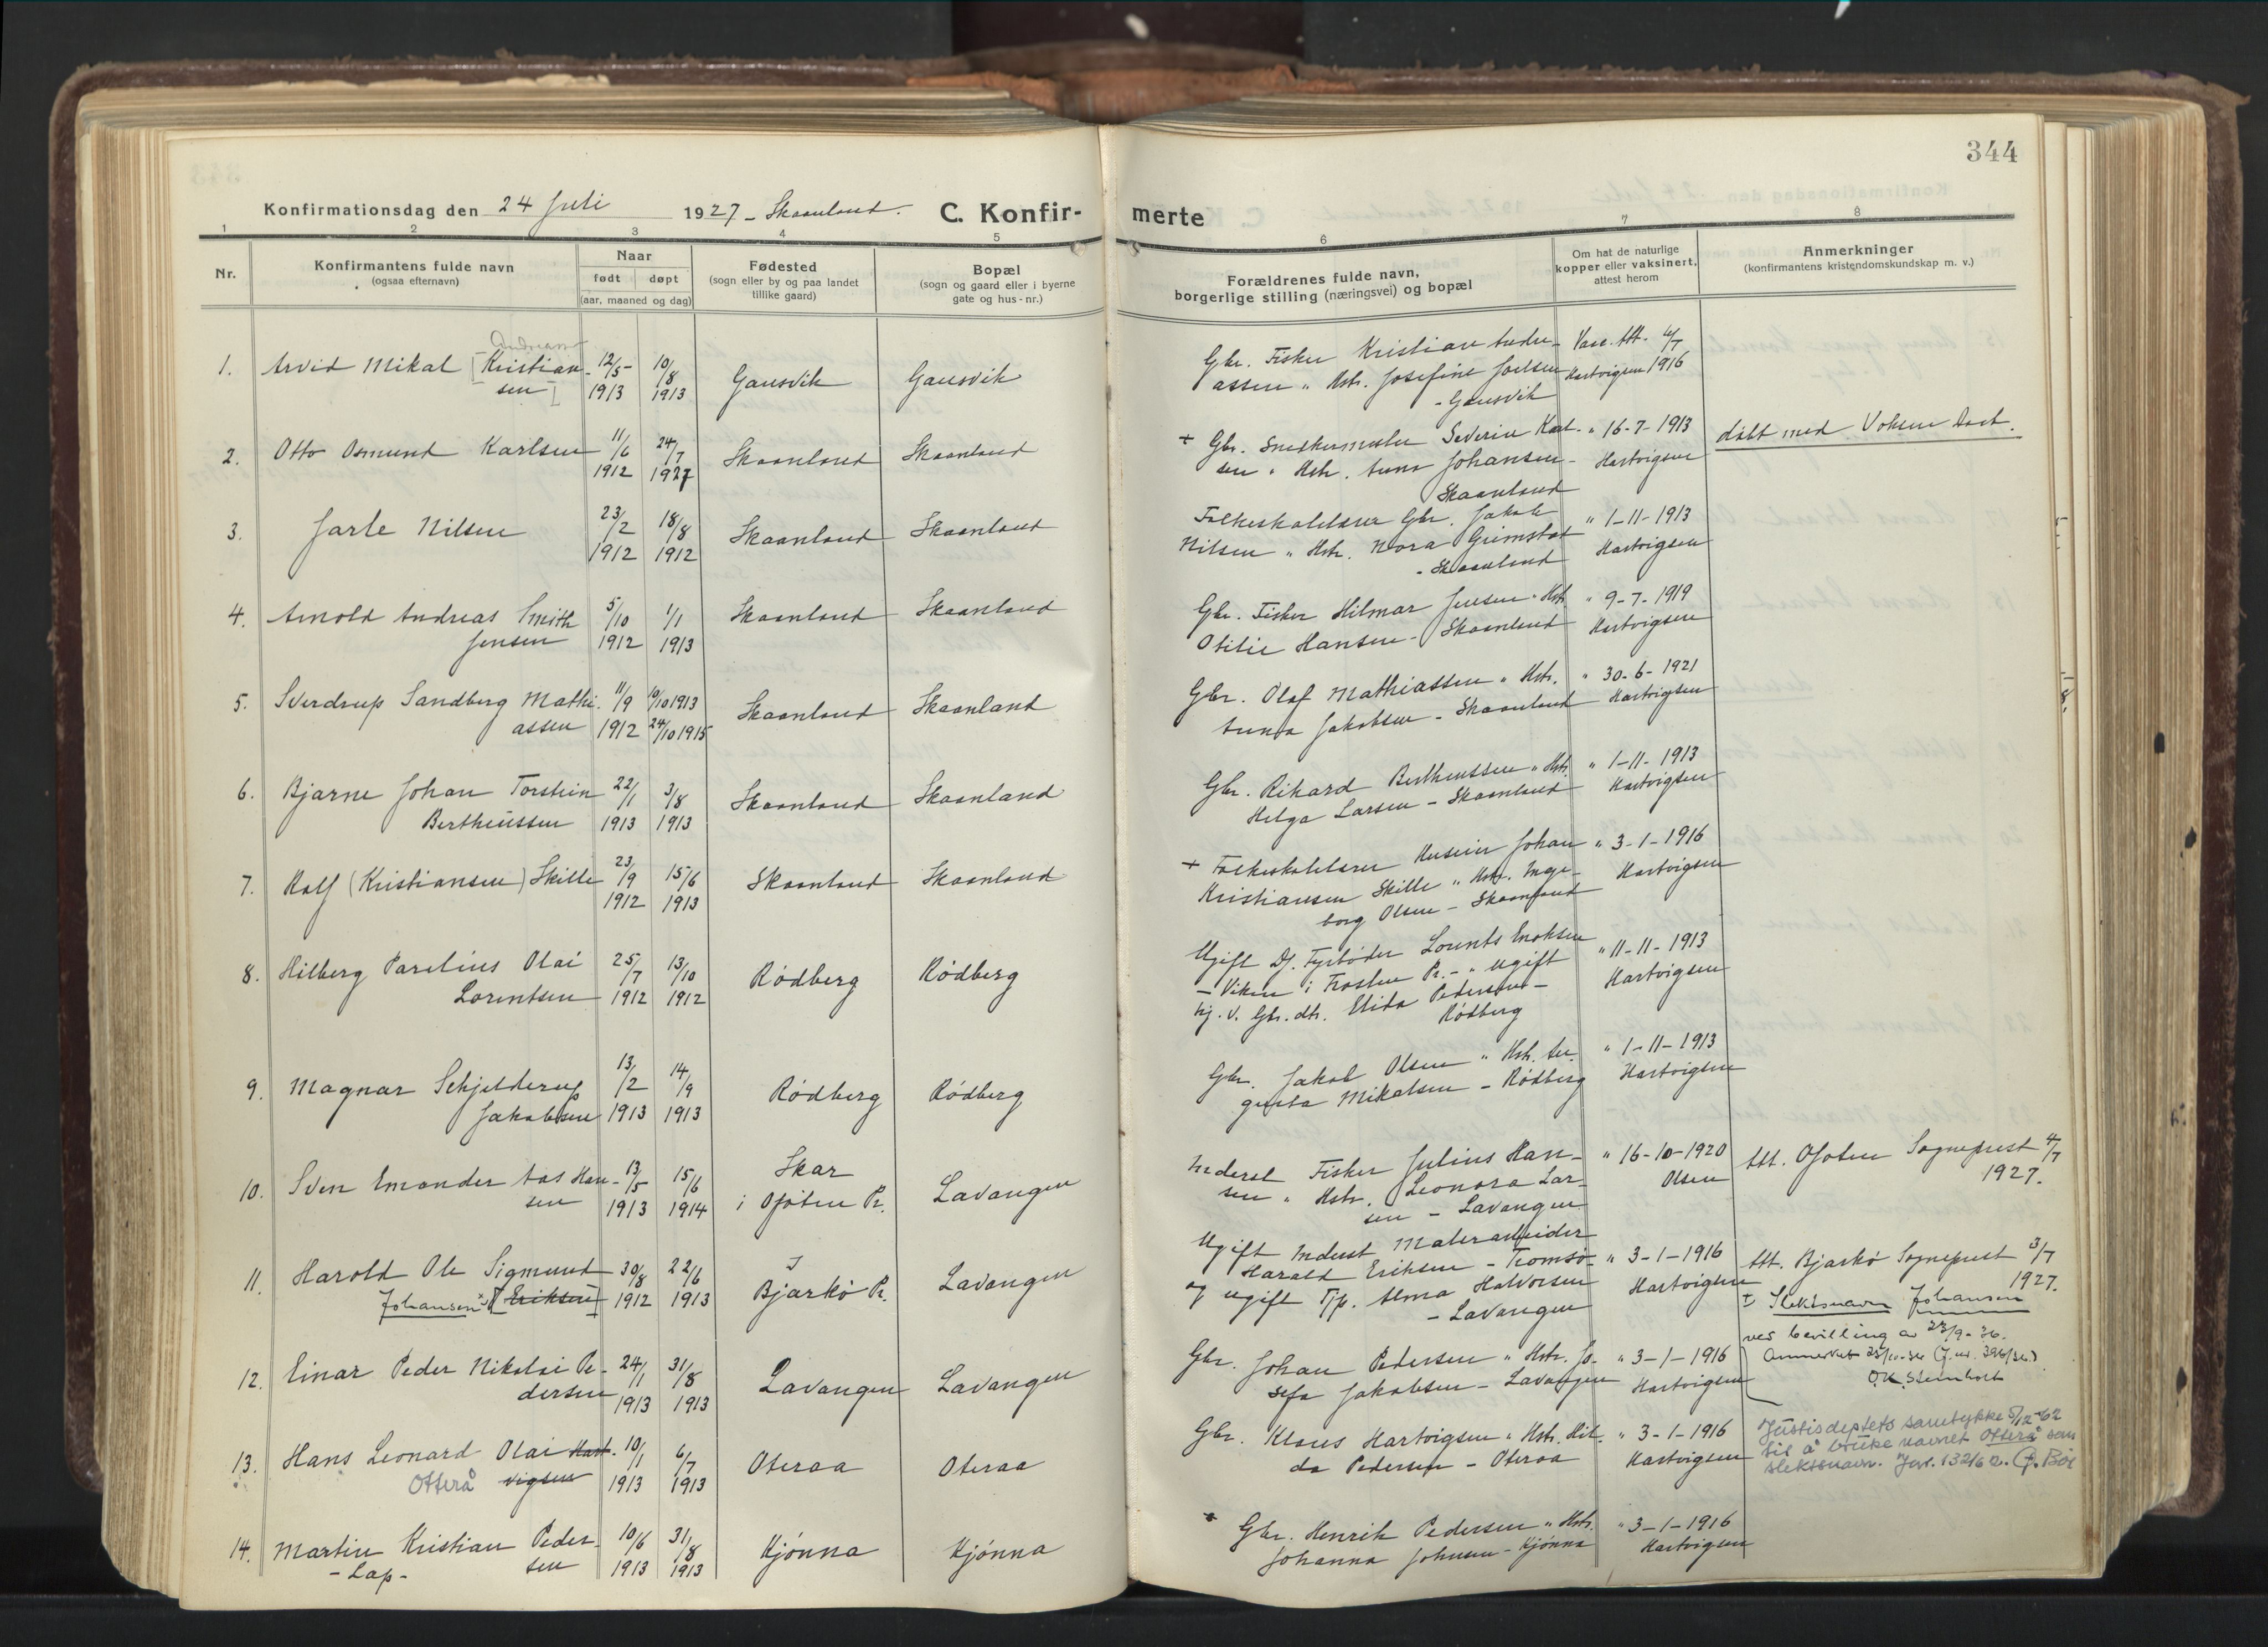 344
Konfirmationsdag den 24 Juli 1927 - Skaanland. C. Konfir- merte
1 2 3 4 5 6 7 8
Nr.
Konfirmantens fulde navn
(ogsaa efternavn)
Naar
født døpt
(aar, maaned og dag)
Fødested
(sogn eller by og paa landet
tillike gaard)
Bopæl
(sogn og gaard eller i byerne
gate og hus-nr.)
Forældrenes fulde navn,
borgerlige stilling (næringsvei) og bopæl
Om hat de naturlige
kopper eller vaksinert,
attest herom
Anmerkninger
(konfirmantens kristendomskundskap m. v.)
1. Arvid Mikal [Kristian-
sen]
12/5-
1913
10/8
1913
Gausvik
Gausvik
Gbr. Fisker Kristian Andre-
assen " Hstr. Josefine Joelsen
- Gausvik
Vacc. Att. 4/7
Hartvigsen 1916
2. Otto Osmund Karlsen
11/6
1912
24/7
1927
Skaanland
Skaanland
+ Gbr. Snedkermester Severin Karl-
sen " Hstr. Anna Johansen -
Skaanland
" 16-7-1913
Hartvigsen
døbt med Voksen Daab.
3. Jarle Nilsen
23/2
1912
18/8
1912
Skaanland
Skaanland
Folkeskolelærer Gbr. Jakob
Nilsen " Hstr. Nora Grimstad
- Skaanland
" 1-11-1913
Hartvigsen
4. Arnold Andreas Smith
Jensen
5/10
1912
1/1
1913
Skaanland
Skaanland
Gbr. Fisker Hilmar Jensen " Hstr.
Otilie Hansen - Skaanland
" 9-7-1919
Hartvigsen
5. Sverdrup Sandberg Mathi-
assen
11/9
1912
10/10 1913
24/10 1915
Skaanland
Skaanland
Gbr. Olaf Mathiassen " Hstr.
Anna Jakobsen - Skaanland
" 30-6-1921
Hartvigsen
6. Bjarne Johan Torstein
Bertheussen
22/1
1913
3/8
1913
Skaanland
Skaanland
Gbr. Rikard Bertheussen " Hstr.
Helga Larsen - Skaanland
" 1-11-1913
Hartvigsen
7. Ralf (Kristiansen) Skille
23/9
1912
15/6
1913
Skaanland
Skaanland
+ Folkeskolelærer Johan
Kristiansen Skille " Hstr. Inge-
borg Olsen - Skaanland
" 3-1-1916
Hartvigsen
8. Hilberg Parelius Olai
Lorentsen
25/7
1912
13/10
1912
Rødberg
Rødberg
Ugift Dj. Fyrbøder Lorents Enoksen
- Viken i Trasten Pr. - " ugift
hj. v. Gbr. dtr. Elida Pedersen -
Rødberg
" 11-11-1913
Hartvigsen
9. Magnar Schjelderup
Jakobsen
13/2
1913
14/9
1913
Rødberg
Rødberg
Gbr. Jakob Olsen " Hstr. Au-
gusta Mikalsen - Rødberg
" 1-11-1913
Hartvigsen
10. Sven Emander Aas Han-
sen
13/5
1913
15/6
1914
Skar
i Ofoten Pr.
Lavangen
Inderst Fisker Julius Han-
sen " Hstr. Leonora Lar-
sen - Lavangen
" 16-10-1920
Olsen
Att. Ofoten Sogneprest 4/7
1927.
11. Harald Ole Sigmund
Johansen x) [Eriksen]
30/8
1912
22/6
1913
I
Bjarkø Pr.
Lavangen
Ugift Inderst Malerarbeider
Harald Eriksen - Tromsø -
og ugift Tjp. Alma Halvorsen
- Lavangen
" 3-1-1916
Hartvigsen
Att. Bjarkø Sogneprest 3/7
1927.
x Slektsnavn Johansen
ved bevilling av 23/9-36.
Anmerket 25/10-36 (J.nr. 396/36.)
O.K. Steinholt
12. Einar Peder Nikolai Pe-
dersen
24/1
1913
31/8
1913
Lavangen
Lavangen
Gbr. Johan Pedersen " Hstr. Jo-
sefa Jakobsen - Lavangen
" 3-1-1916
Hartvigsen
13. Hans Leonard Olai Hart-
Otterå vigsen
10/1
1913
6/7
1913
Oteraa
Oteraa
Gbr. Klaus Hartvigsen " Hstr. Hil-
da Pedersen - Oteraa
" 3-1-1916
Hartvigsen
Justisdeptets samtykke 5/12-62
til å bruke navnet Otterå som
slektsnavn. Jnr. 132/62.
14. Martin Kristian Peder-
- Lap - sen
10/6
1913
31/8
1913
Kjønna
Kjønna
Gbr. Henrik Pedersen " Hstr.
Johanna Johnsen - Kjønna
" 3-1-1916
Hartvigsen